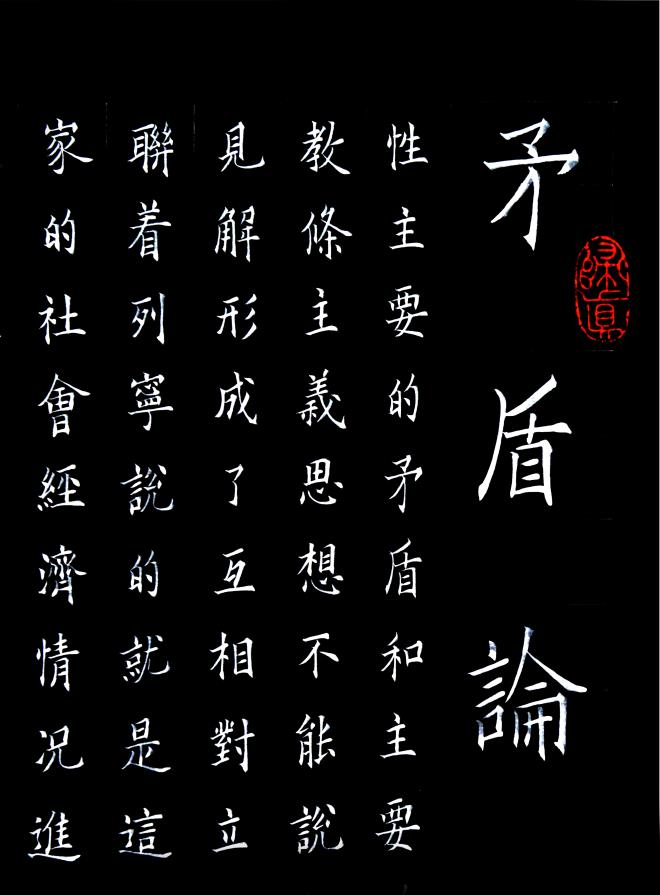 矛盾論
性主要的矛盾和主要
教條主義思想不能說
見解形成了互相對立
聯着列寧說的就是這
家的社會經濟情况進